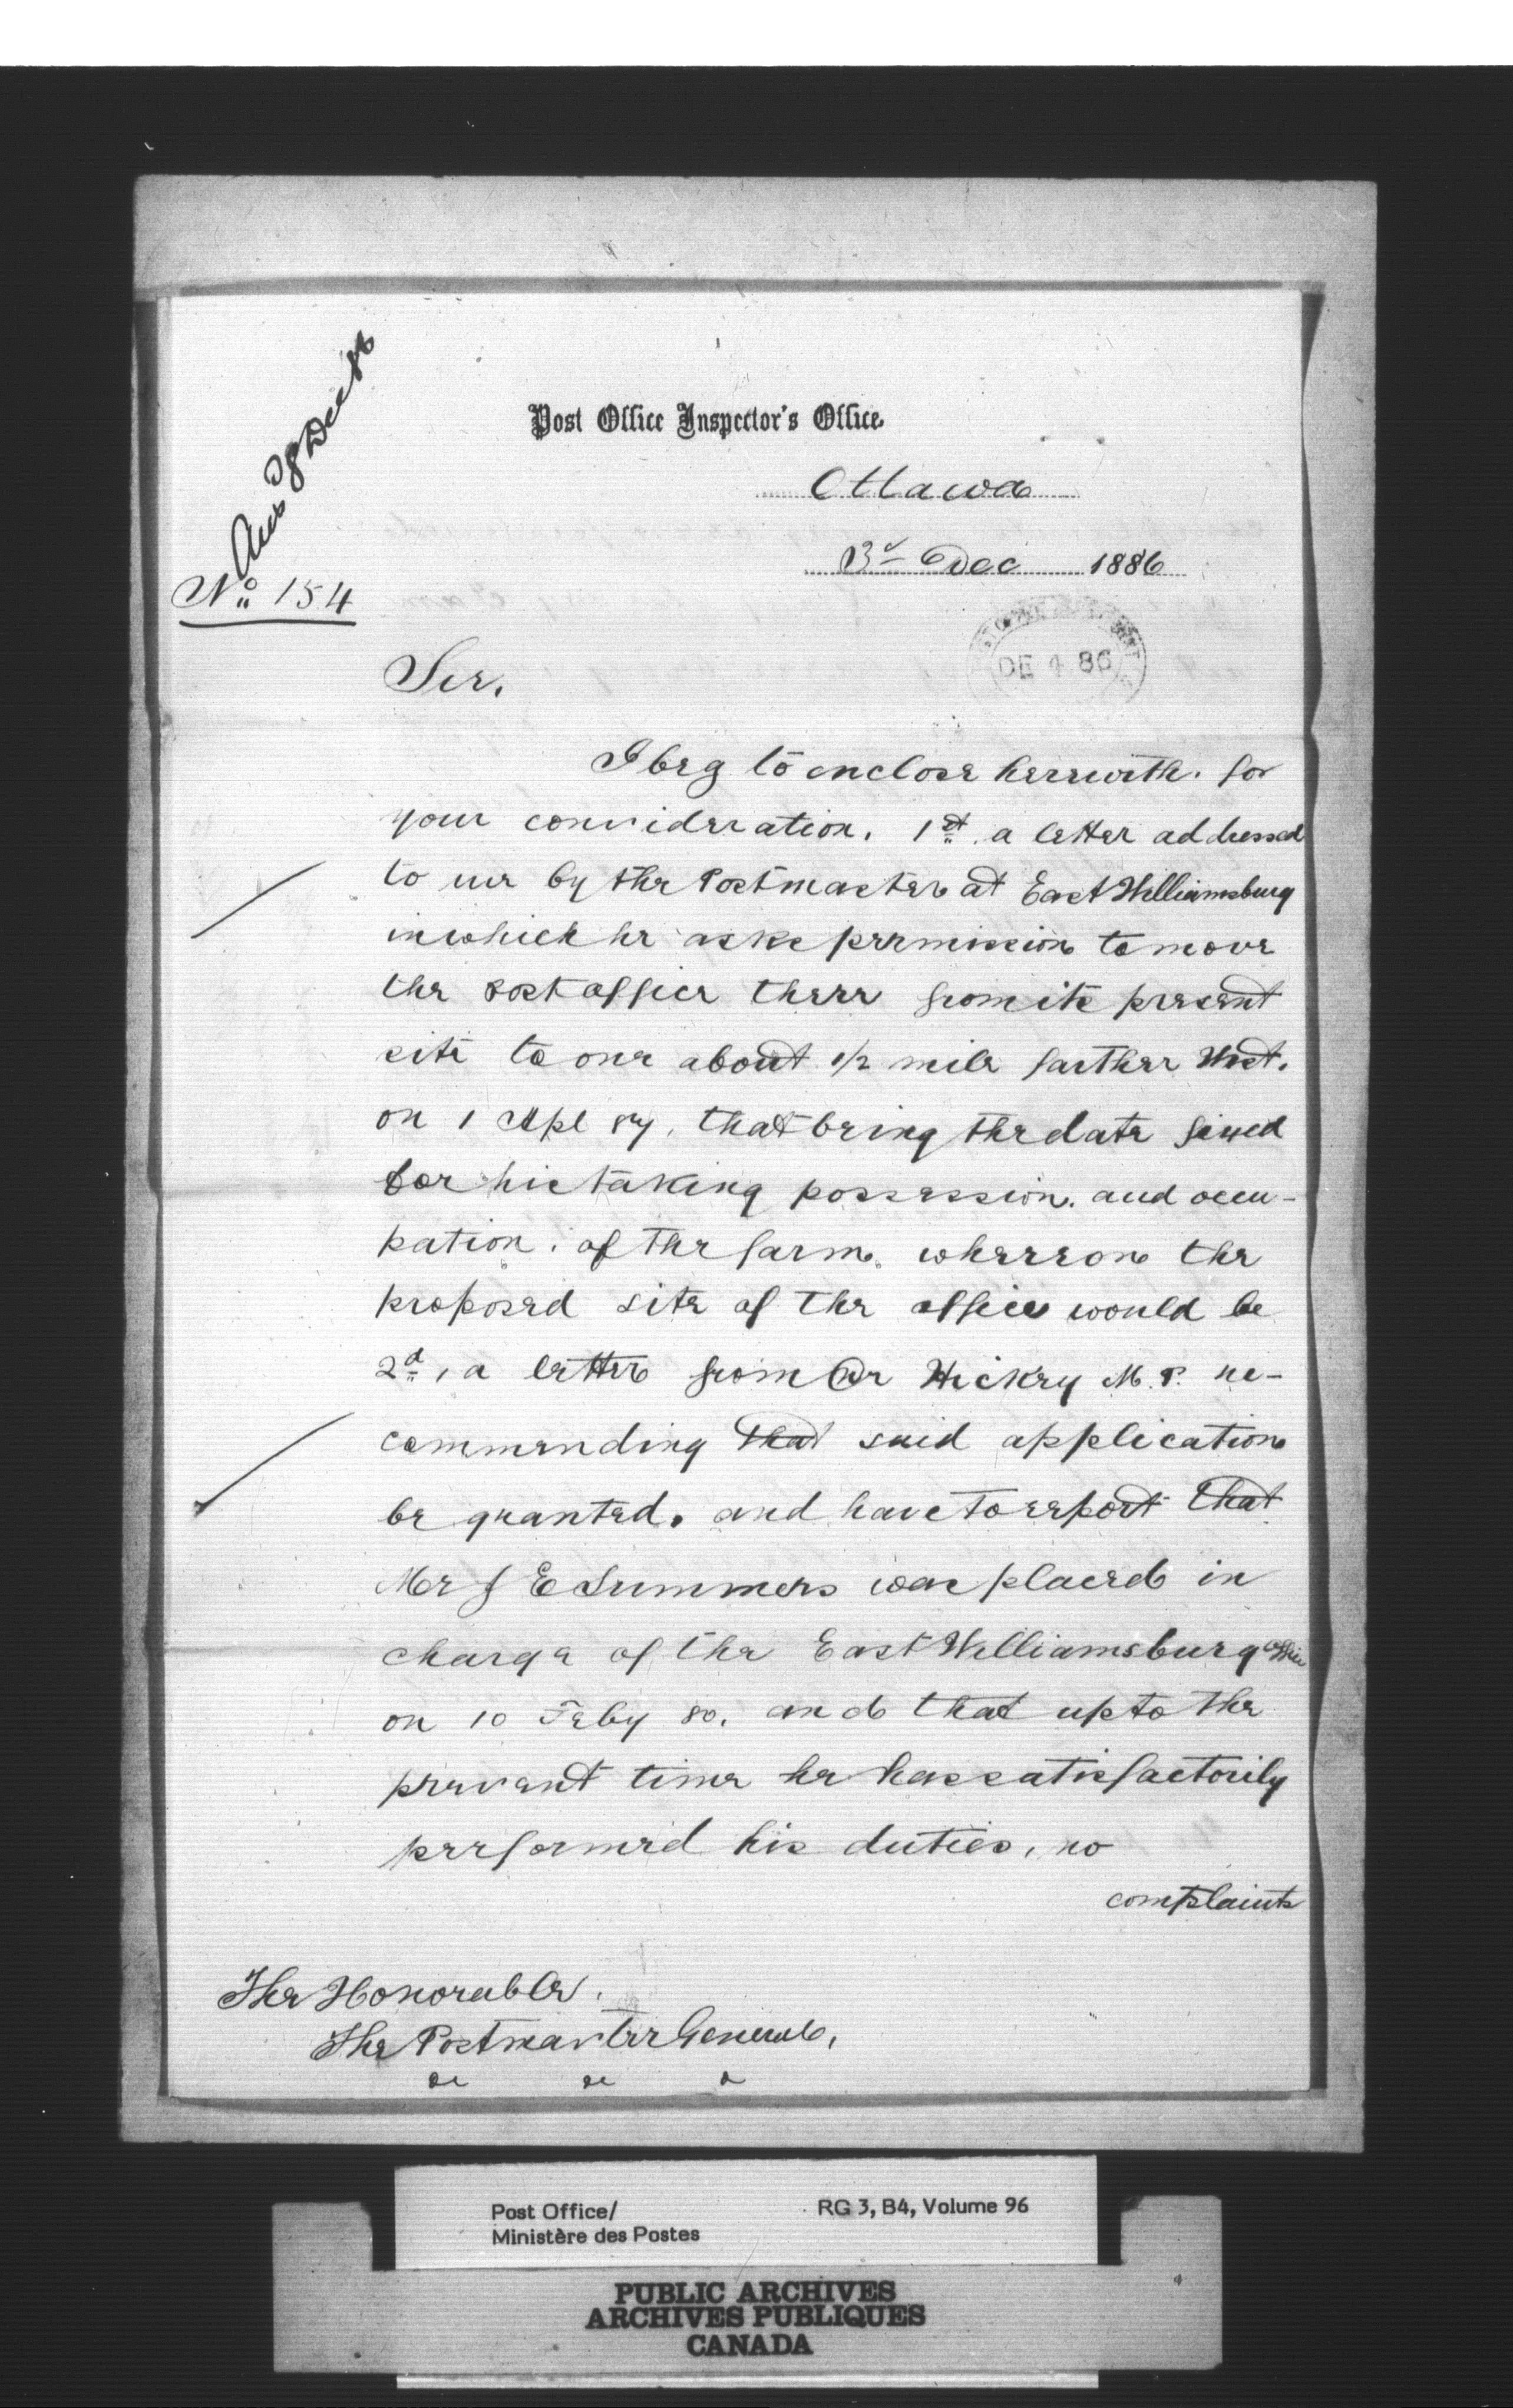 Ans 8 Dec 86
No 154
Post Office Inspector's Office.
Ottawa
3d Dec 1886
DE 4 86
Sir,
I beg to enclose herewith for
your consideration, 1st a letter addressed
to me by the Postmaster at East Williamsburg
in which he asks permission to move
the Post office there from its present
site to one about 1/2 mile farther West.
on 1 Apl 87, that being the date fixed
for his taking possession. and occu-
pation. of the farm. whereon the
proposed site of the office would be
2d, a letter from Dr Hickey M.P. re-
commending that said application
be granted. and have to report that
Mr J E Summers was placed in
charge of the East Williamsburg office
on 10 Feby 80. and that up to the
present time he has satisfactorily
performed his duties, no
complaints
The Honorable.
The Postmaster General,
&c &c &
Post Office/
Ministère des Postes
RG 3, B4, Volume 96
PUBLIC ARCHIVES
ARCHIVES PUBLIQUES
CANADA